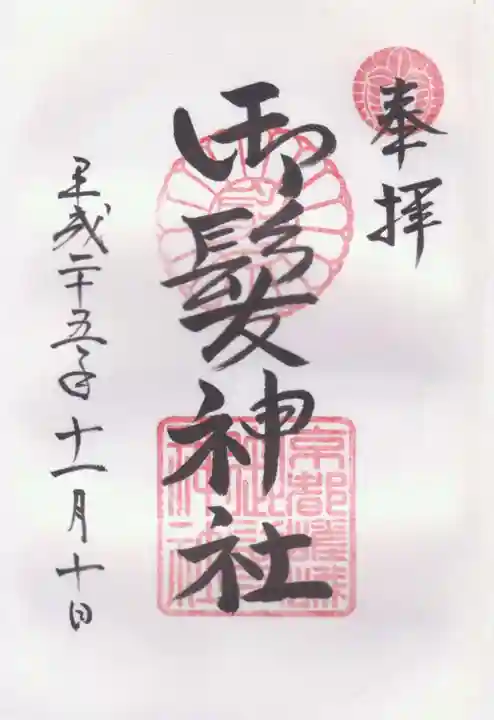 奉拝
御髪神社
平成二十五年十一月十日
京都嵯峨
御髪
神社